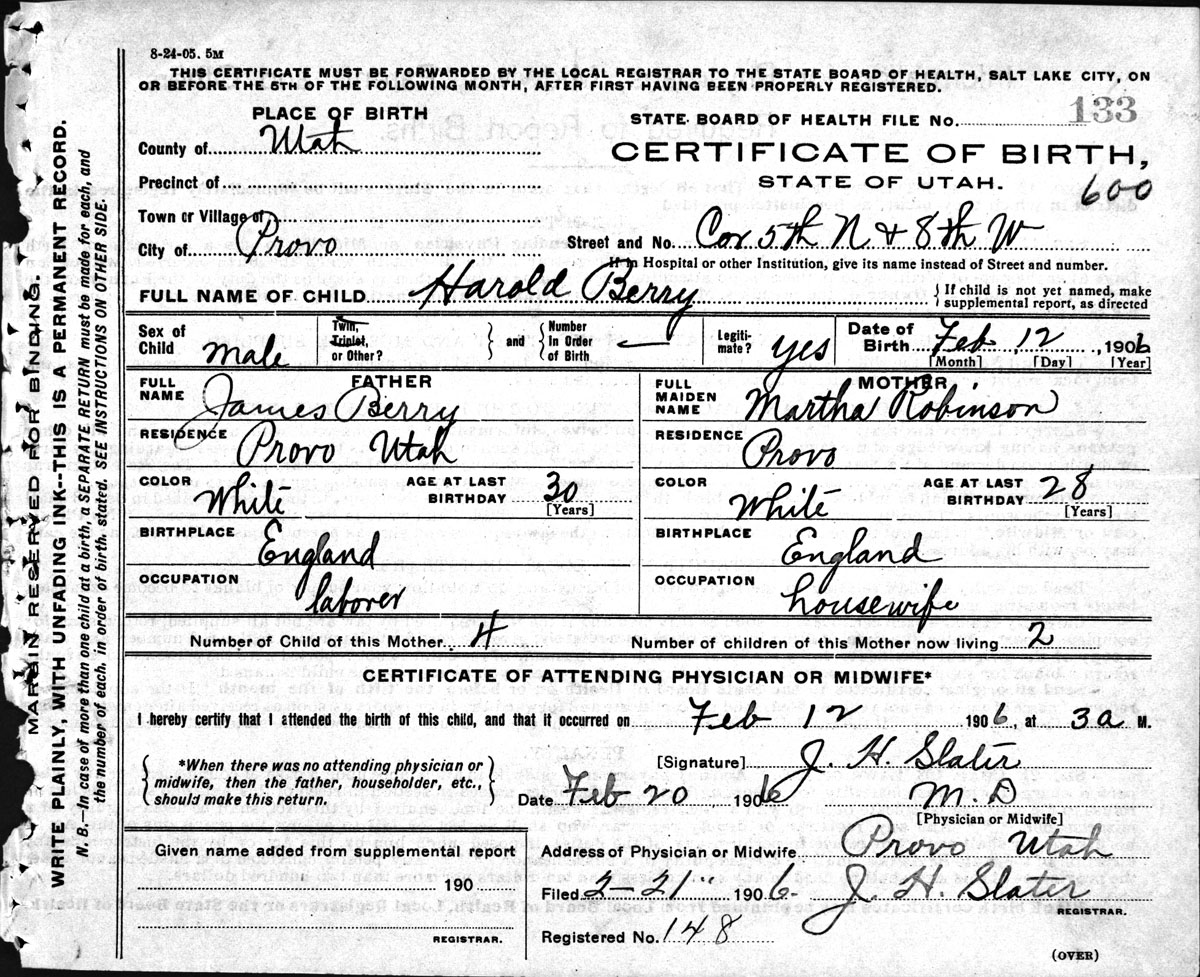 8-24-05. 5M
THIS CERTIFICATE MUST BE FORWARDED BY THE LOCAL REGISTRAR TO THE STATE BOARD OF HEALTH, SALT LAKE CITY, ON
OR BEFORE THE 5TH OF THE FOLLOWING MONTH, AFTER FIRST HAVING BEEN PROPERLY REGISTERED.
PLACE OF BIRTH
STATE BOARD OF HEALTH FILE No. 133
County of Utah
CERTIFICATE OF BIRTH,
Precinct of
STATE OF UTAH.
600
Town or Village of
City of Provo
Street and No. Cor 5th N & 8th W
If in Hospital or other Institution, give its name instead of Street and number.
FULL NAME OF CHILD Harold Berry
{ If child is not yet named, make
supplemental report, as directed
Sex of Child male
Twin, Triplet, or Other? } and { Number In Order of Birth —
Legiti-mate? yes
Date of Birth Feb 12, 1906
[Month] [Day] [Year]
FATHER
FULL NAME James Berry
RESIDENCE Provo Utah
COLOR White AGE AT LAST BIRTHDAY 30
[Years]
BIRTHPLACE England
OCCUPATION laborer
MOTHER
FULL MAIDEN NAME Martha Robinson
RESIDENCE Provo
COLOR White AGE AT LAST BIRTHDAY 28
[Years]
BIRTHPLACE England
OCCUPATION housewife
Number of Child of this Mother 4 Number of children of this Mother now living 2
CERTIFICATE OF ATTENDING PHYSICIAN OR MIDWIFE*
I hereby certify that I attended the birth of this child, and that it occurred on Feb 12 1906, at 3a M.
{ *When there was no attending physician or
midwife, then the father, householder, etc.,
should make this return. }
[Signature] J. H. Slater
Date Feb 20 1906 M. D
[Physician or Midwife]
Given name added from supplemental report
190
REGISTRAR.
Address of Physician or Midwife Provo Utah
Filed 2-21 1906. J. H. Slater
REGISTRAR.
Registered No. 148
(OVER)
MARGIN RESERVED FOR BINDING.
WRITE PLAINLY, WITH UNFADING INK--THIS IS A PERMANENT RECORD.
N. B.—In case of more than one child at a birth, a SEPARATE RETURN must be made for each, and
the number of each, in order of birth, stated. SEE INSTRUCTIONS ON OTHER SIDE.